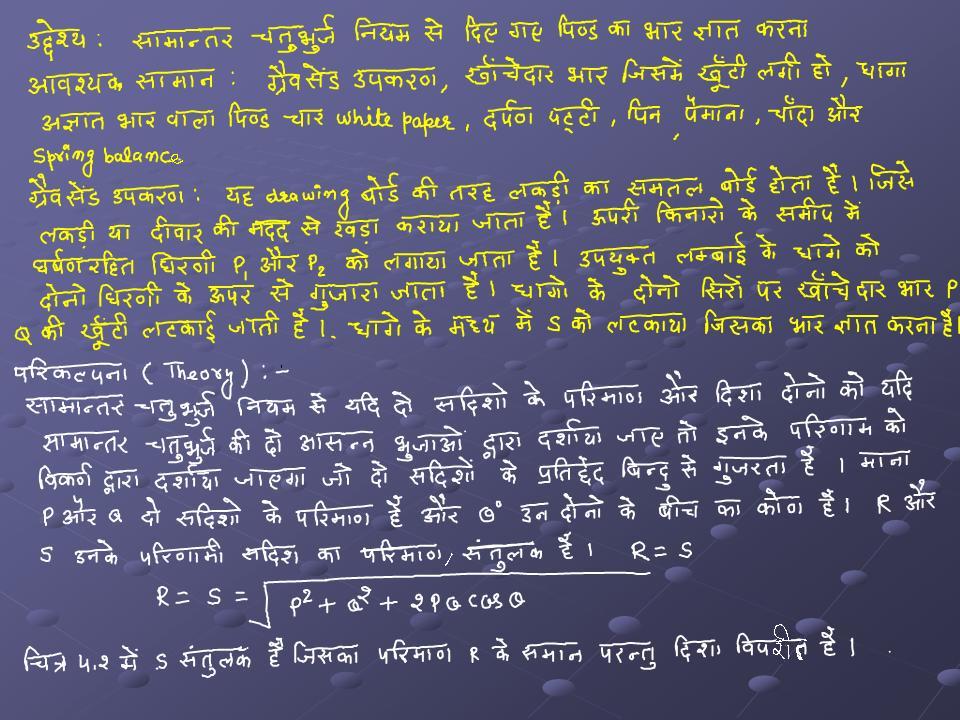 उद्देश्य : सामान्तर चतुर्भुर्ज नियम से दिए गए पिण्ड का भार ज्ञात करना
आवश्यक सामान : ग्रैवसेंड उपकरण, खाँचेदार भार जिसमें खूँटी लगी हो, धागा
अज्ञात भार वाला पिण्ड चार white paper, दर्पण पट्टी, पिन, पैमाना, चाँदा और
Spring balance
ग्रैवसेंड उपकरण : यह drawing बोर्ड की तरह लकड़ी का समतल बोर्ड होता है। जिसे
लकड़ी या दीवार की मदद से खड़ा कराया जाता है। ऊपरी किनारो के समीप में
घर्षणरहित घिरणी P₁ और P₂ को लगाया जाता है। उपयुक्त लम्बाई के धागे को
दोनो घिरणी के ऊपर से गुजारा जाता है। धागे के दोनो सिरों पर खाँचेदार भार P
Q की खूँटी लटकाई जाती है। धागे के मध्य में S को लटकाया जिसका भार ज्ञात करना है।
परिकल्पना (Theory) : -
सामान्तर चतुर्भुर्ज नियम से यदि दो सदिशो के परिमाण और दिशा दोनो को यदि
सामान्तर चतुर्भुर्ज की दो आसन्न भुजाओं द्वारा दर्शाया जाए तो इनके परिणाम को
विकर्ण द्वारा दर्शाया जाएगा जो दो सदिशों के प्रतिछेद बिन्दु से गुजरता है। माना
P और Q दो सदिशो के परिमाण हैं और θ° उन दोनो के बीच का कोण है। R और
S उनके परिणामी सदिश का परिमाण, संतुलक है। R = S
R = S = √P² + Q² + 2PQ cos θ
चित्र 4.2 में S संतुलक है जिसका परिमाण R के समान परन्तु दिशा विपरीत है।